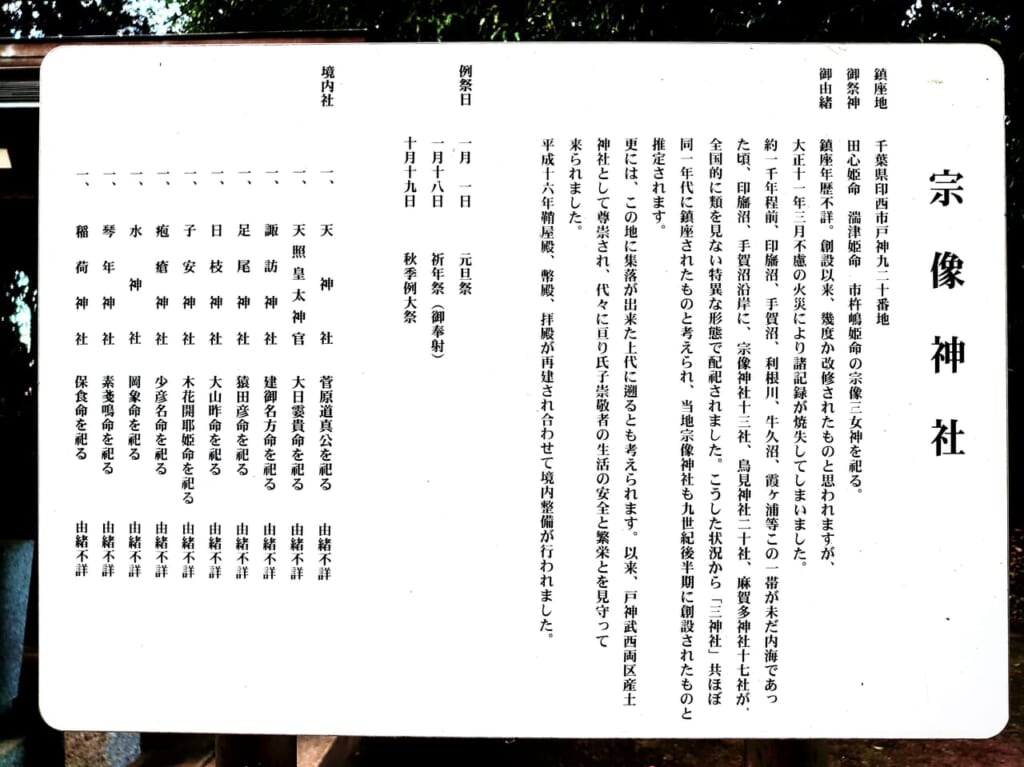 宗像神社
鎮座地　千葉県印西市戸神九二十番地
御祭神　田心姫命　湍津姫命　市杵嶋姫命の宗像三女神を祀る。
御由緒　鎮座年歴不詳。創設以来、幾度か改修されたものと思われますが、
大正十一年三月不慮の火災により諸記録が焼失してしまいました。
約一千年程前、印旛沼、手賀沼、利根川、牛久沼、霞ヶ浦等この一帯が未だ内海であっ
た頃、印旛沼、手賀沼沿岸に、宗像神社十三社、鳥見神社二十社、麻賀多神社十七社が、
全国的に類を見ない特異な形態で配祀されました。こうした状況から「三神社」共ほぼ
同一年代に鎮座されたものと考えられ、当地宗像神社も九世紀後半期に創設されたものと
推定されます。
更には、この地に集落が出来た上代に遡るとも考えられます。以来、戸神武西両区産土
神社として尊崇され、代々に亘り氏子崇敬者の生活の安全と繁栄とを見守って
来られました。
平成十六年鞘屋殿、幣殿、拝殿が再建され合わせて境内整備が行われました。
例祭日　一月　一日　元旦祭
一月十八日　祈年祭（御奉射）
十月十九日　秋季例大祭
境内社　一、天神社　菅原道真公を祀る　由緒不詳
一、天照皇太神官　大日霎貴命を祀る　由緒不詳
一、諏訪神社　建御名方命を祀る　由緒不詳
一、足尾神社　猿田彦命を祀る　由緒不詳
一、日枝神社　大山昨命を祀る　由緒不詳
一、子安神社　木花開耶姫命を祀る　由緒不詳
一、疱瘡神社　少彦名命を祀る　由緒不詳
一、水神社　岡象命を祀る　由緒不詳
一、琴年神社　素戔鳴命を祀る　由緒不詳
一、稲荷神社　保食命を祀る　由緒不詳